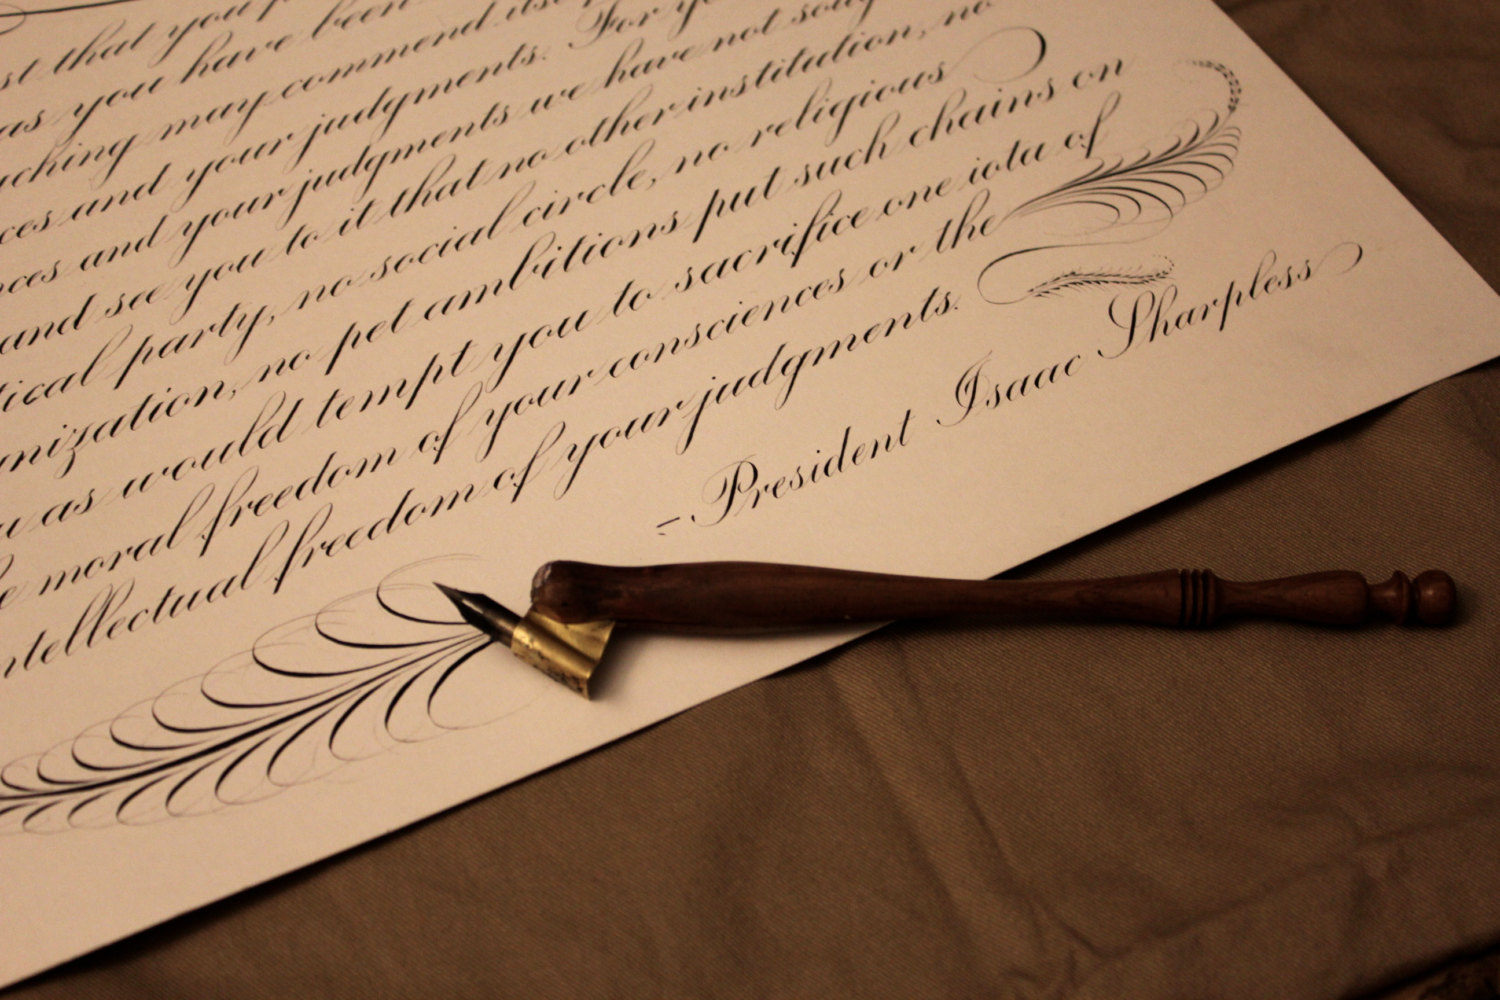 that you
as you have been
may commend
and your judgments. For
and your judgments we have not
and see you to it that no other institution, no
party, no social circle, no religious
no pet ambitions put such chains on
as would tempt you to sacrifice one iota of
moral freedom of your consciences or the
intellectual freedom of your judgments.
- President Isaac Sharpless